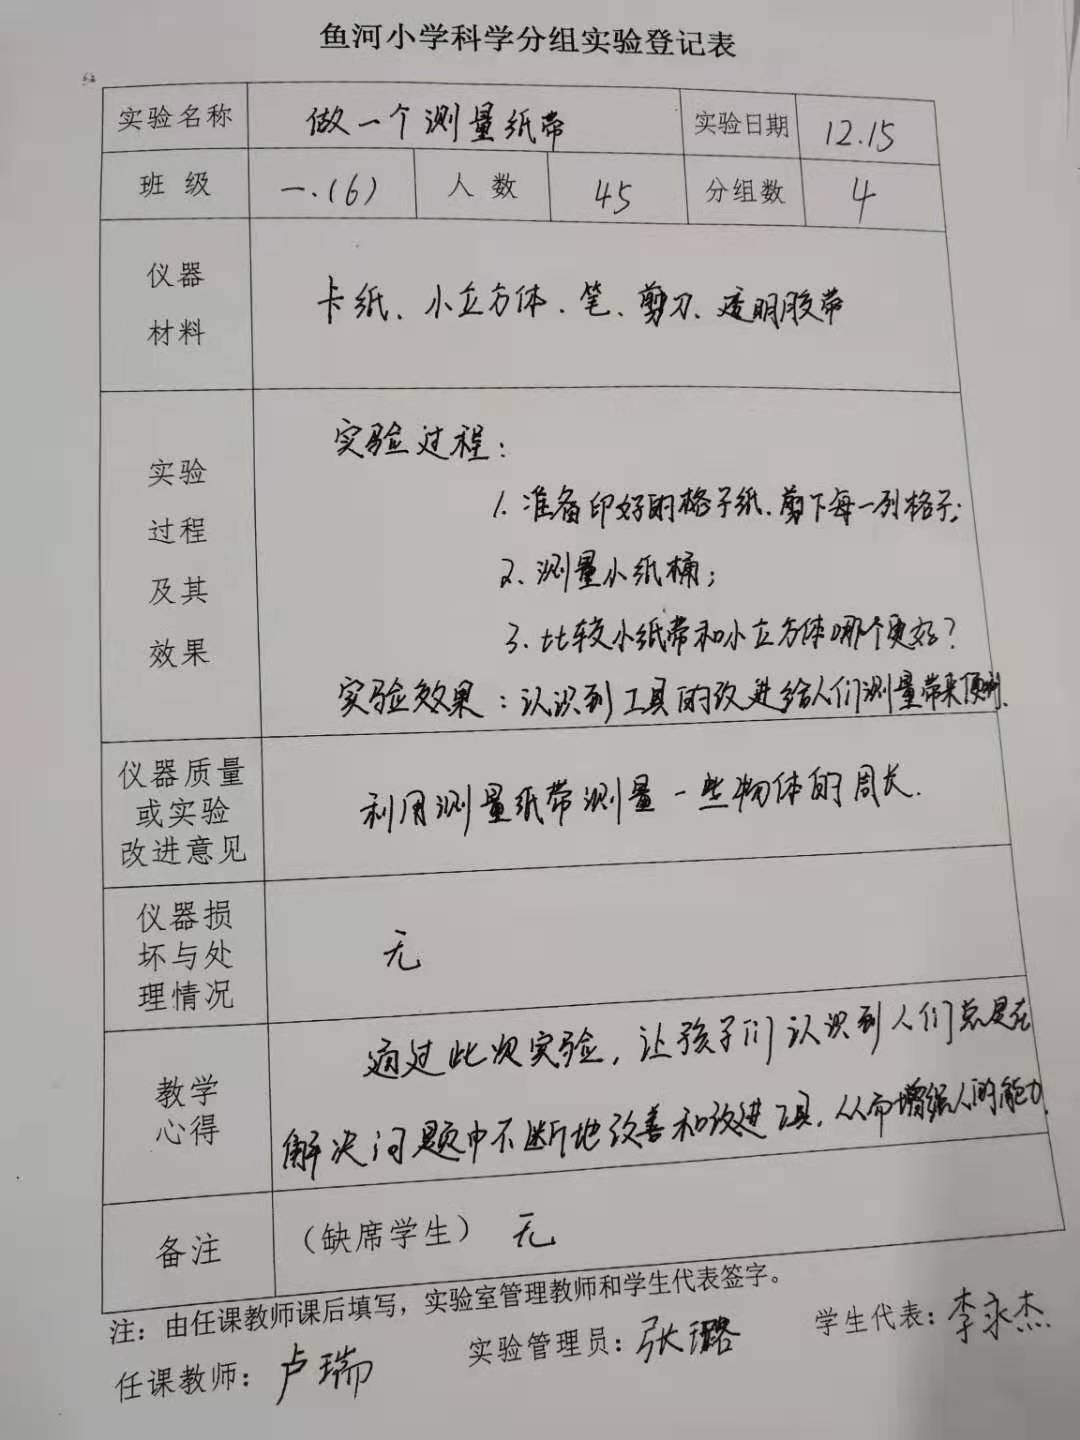 鱼河小学科学分组实验登记表
实验名称 做一个测量纸带 实验日期 12.15
班 级 一.(6) 人 数 45 分组数 4
仪器
材料
卡纸、小立方体、笔、剪刀、透明胶带
实验
过程
及其
效果
实验过程:
1. 准备印好的格子纸、剪下每一列格子;
2、测量小纸桶;
3、比较小纸带和小立方体哪个更好?
实验效果:认识到工具的改进给人们测量带来便利.
仪器质量
或实验
改进意见
利用测量纸带测量一些物体的周长.
仪器损
坏与处
理情况
无
教学
心得
通过此次实验,让孩子们认识到人们总是在
解决问题中不断地改善和改进工具,从而增强人的能力.
备注 (缺席学生) 无
注:由任课教师课后填写,实验室管理教师和学生代表签字。
任课教师:卢瑞 实验管理员:张璐 学生代表:李永杰